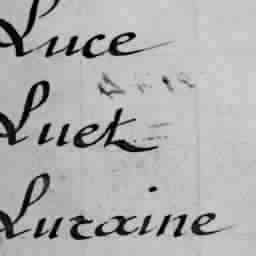 Luce
Luet
Luraine